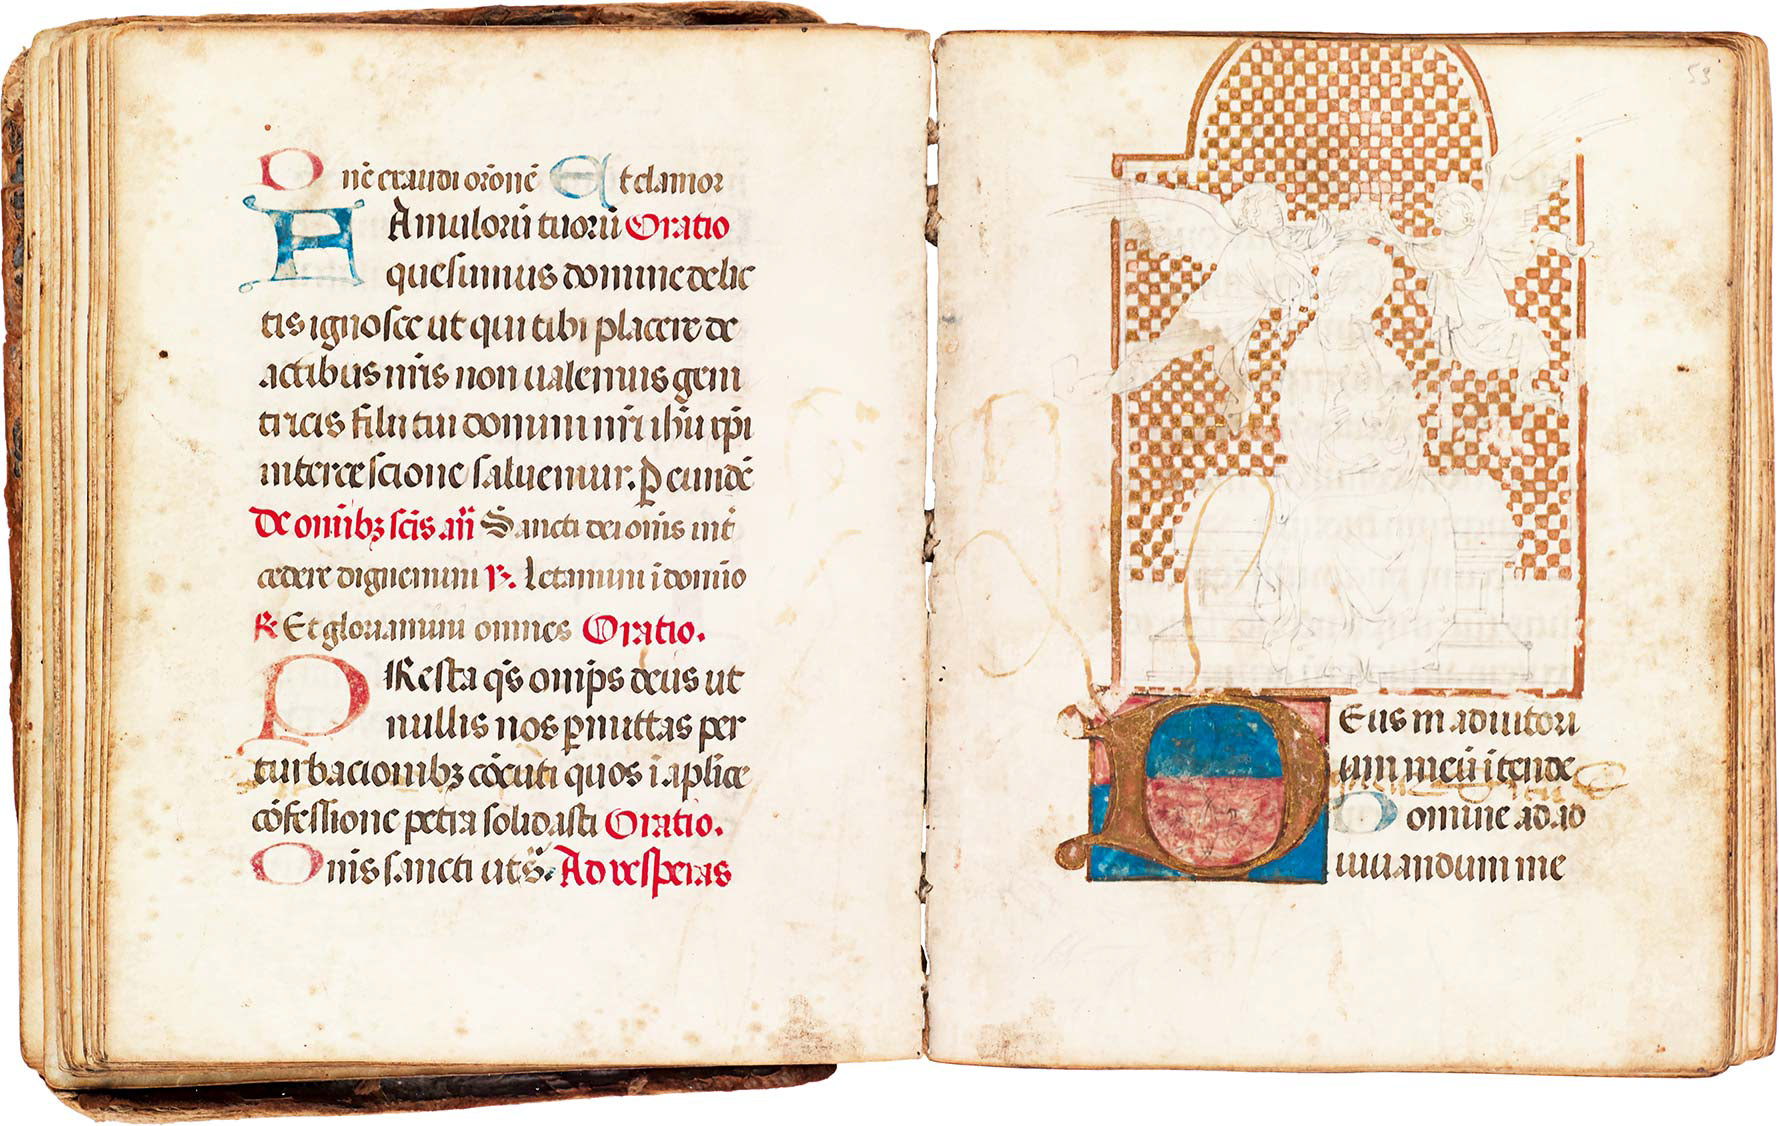 Dnē exaudi orōnē Et clamor
Famulorū tuorū Oratio
quesumus domine delic
tis ignosce ut qui tibi placere de
actibus nr̄is non ualemus geni
tricis filii tui domini nr̄i ihū xp̄i
intercescione saluemur. P eundē
De omibꝫ scīs añ Sancti dei om̄s int̄
cedere dignemini ℣. Letamini ī domīo
℟ Et gloriamini omnes Oratio.
PResta qs̄ omīps deus ut
nullis nos ꝑmittas per
turbacionibꝫ cōcuti quos ī aplīce
cōfessione petra solidasti Oratio.
Om̄s sancti ut s̄. Ad vesperas
53
DEus in adiutori
um meū ītende
Domine ad ad
iuuandum me